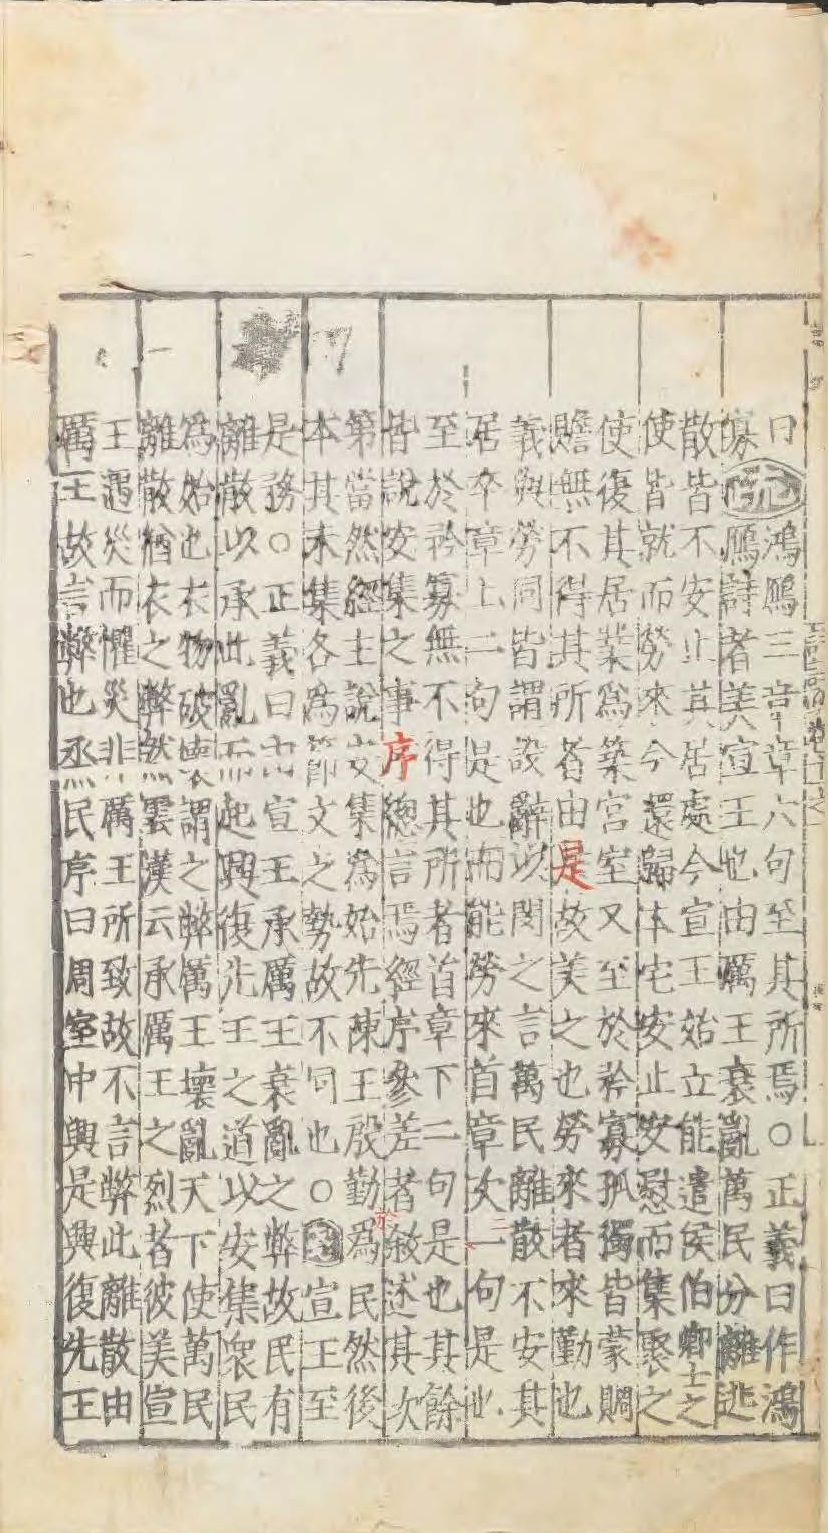 曰疏鴻鴈三章章六句至其所焉○正義曰作鴻
寡鴈詩者美宣王也由厲王衰亂萬民分離逃
散皆不安止其居處今宣王始立能遣侯伯卿士之
使皆就而勞來今還歸本宅安止安慰而集聚之
使復其居業爲築宮室又至於矜寡孤獨皆蒙賙
贍無不得其所者由是故美之也勞來者來勤也
義與勞同皆謂設辭以閔之言萬民離散不安其
居卒章上二句是也而能勞來首章次二句是也
至於矜寡無不得其所者首章下二句是也其餘
皆說安集之事序總言焉經序參差者敘述其次
第當然經主說安集爲始先陳王殷勤爲民然後
本其未集各爲節文之勢故不同也○箋宣王至
是務○正義曰宣王承厲王衰亂之弊故民有
離散以承此亂而起興復先王之道以安集衆民
爲始也衣物破壞謂之弊厲王壞亂天下使萬民
離散猶衣之弊然雲漢云承厲王之烈者彼美宣
王遇災而懼災非厲王所致故不言弊此離散由
厲王故言弊也烝民序曰周室中興是興復先王